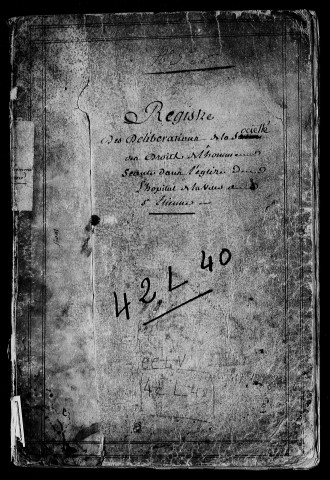 Registre
des Deliberations de la Société
des Droits de l'homme
Seante dans l'eglise de
l'hopital de la ville de
St Etienne
42 L 40
42 L 40